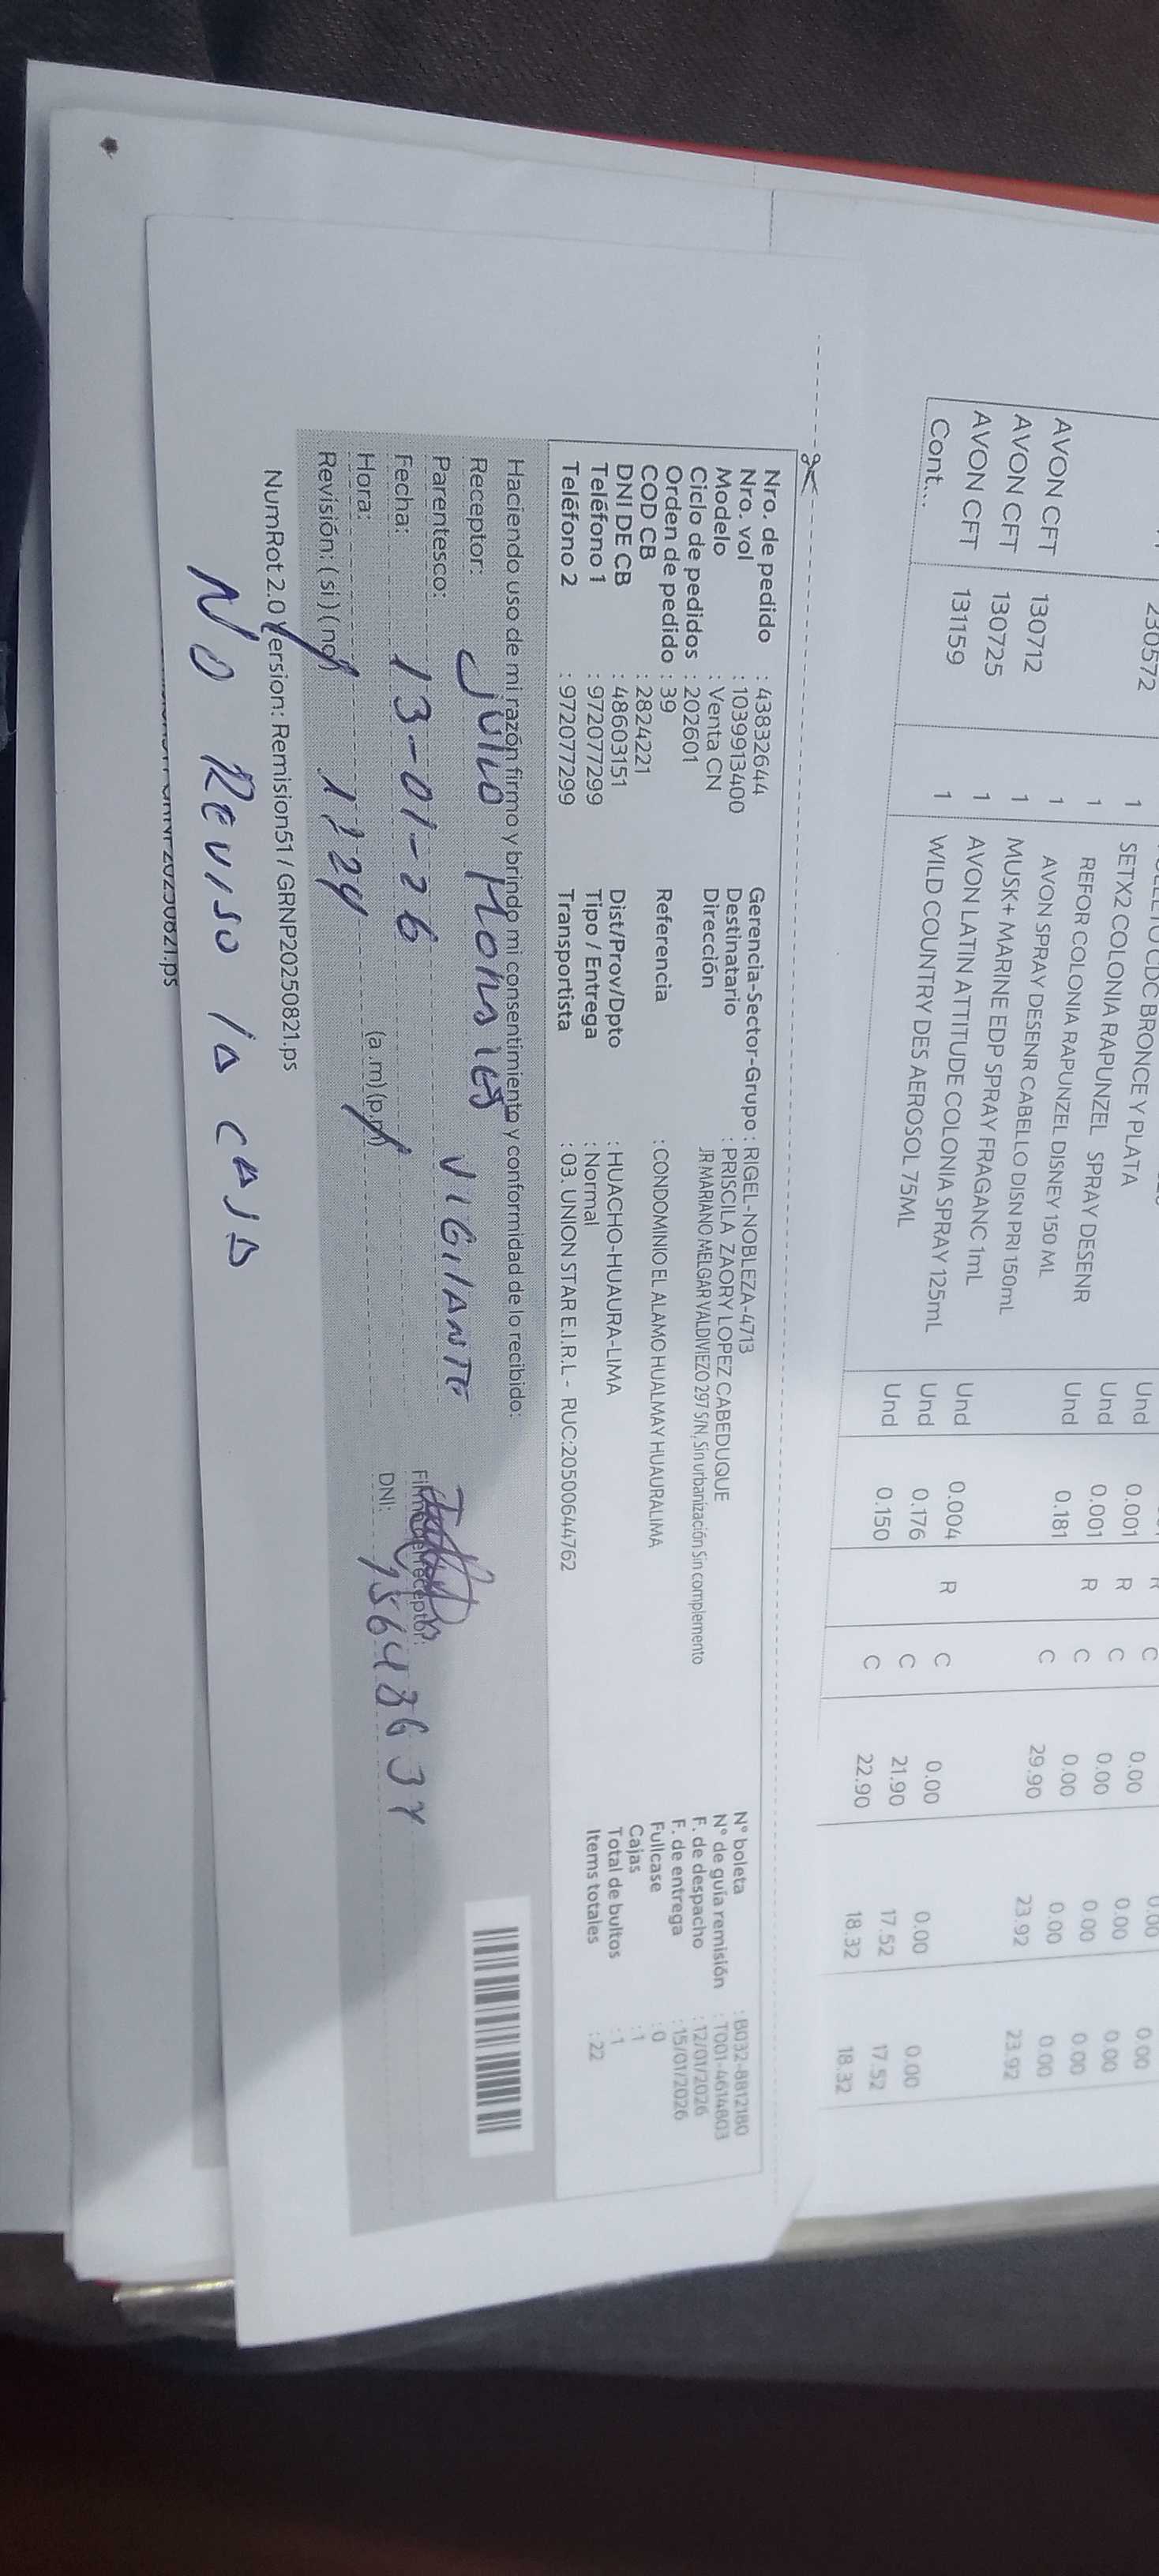 230572
CDC BRONCE Y PLATA
1 SETX2 COLONIA RAPUNZEL SPRAY DESENR Und 0.001 R C 0.00 0.00 0.00
1 REFOR COLONIA RAPUNZEL DISNEY 150 ML Und 0.001 R C 0.00 0.00 0.00
AVON CFT 130712 1 AVON SPRAY DESENR CABELLO DISN PRI 150mL Und 0.181 C 29.90 23.92 23.92
AVON CFT 130725 1 MUSK+ MARINE EDP SPRAY FRAGANC 1mL Und 0.004 R C 0.00 0.00 0.00
AVON CFT 131159 1 AVON LATIN ATTITUDE COLONIA SPRAY 125mL Und 0.176 C 21.90 17.52 17.52
Cont... 1 WILD COUNTRY DES AEROSOL 75ML Und 0.150 C 22.90 18.32 18.32
Nro. de pedido : 43832644 Gerencia-Sector-Grupo : RIGEL-NOBLEZA-4713 N° boleta : B032-8812180
Nro. vol : 1039913400 Destinatario : PRISCILA ZAORY LOPEZ CABEDUQUE N° de guía remisión : T001-4614603
Modelo : Venta CN Dirección JR MARIANO MELGAR VALDIVIEZO 297 S/N, Sin urbanización Sin complemento F. de despacho : 12/01/2026
Ciclo de pedidos : 202601 F. de entrega : 15/01/2026
Orden de pedido : 39 Referencia : CONDOMINIO EL ALAMO HUALMAY HUAURA LIMA Fullcase : 0
COD CB : 2824221 Cajas : 1
DNI DE CB : 48603151 Dist/Prov/Dpto : HUACHO-HUAURA-LIMA Total de bultos : 1
Teléfono 1 : 972077299 Tipo / Entrega : Normal Items totales : 22
Teléfono 2 : 972077299 Transportista : 03. UNION STAR E.I.R.L - RUC:20500644762
Haciendo uso de mi razón firmo y brindo mi consentimiento y conformidad de lo recibido:
Receptor: Julio
Parentesco: VIGILANTE
Fecha: 13-01-26 Firma del receptor:
Hora: 1:24 (a.m)(p.m) DNI:
Revisión: ( si ) ( no )
NumRot 2.0 Version: Remision51 / GRNP20250821.ps
NO REVISO LA CAJA